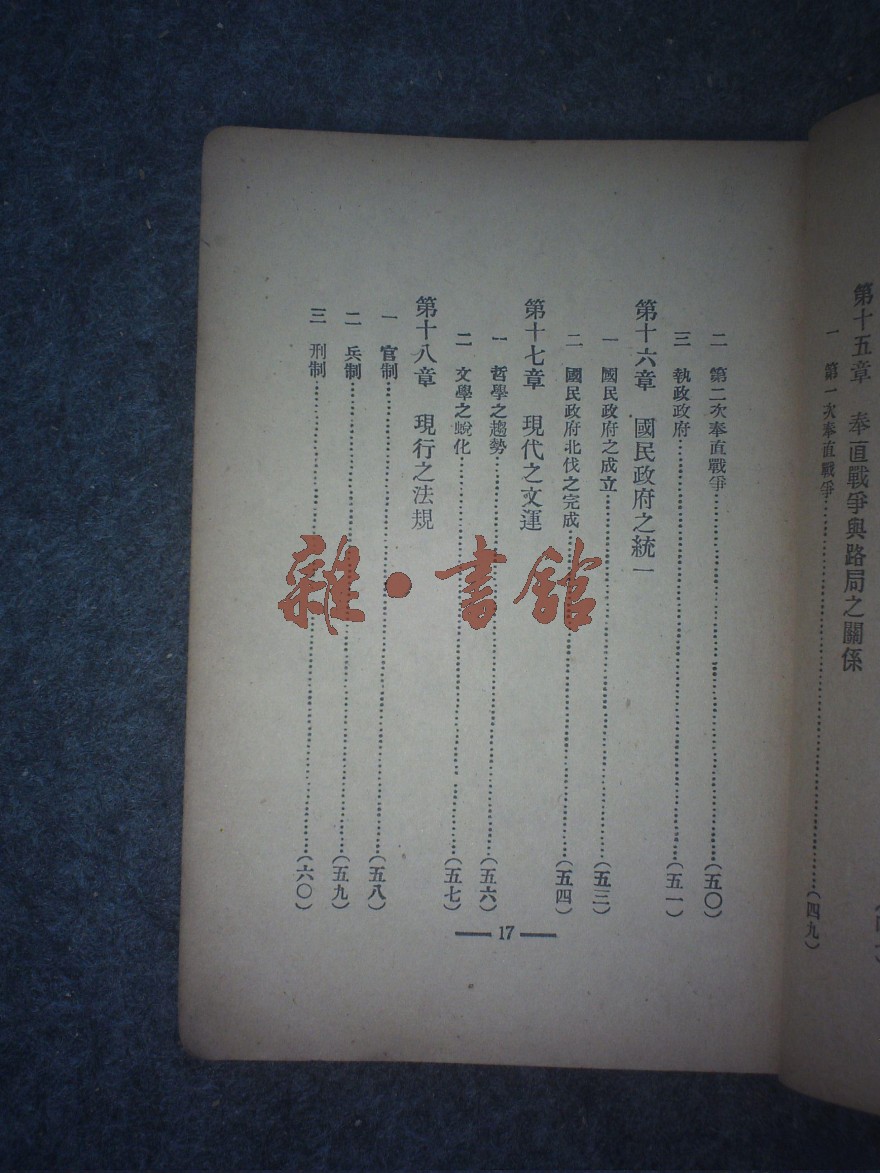 第十五章　奉直戰爭與路局之關係
一　第一次奉直戰爭……(四九)
二　第二次奉直戰爭……(五〇)
三　執政政府……(五一)
第十六章　國民政府之統一
一　國民政府之成立……(五三)
二　國民政府北伐之完成……(五四)
第十七章　現代之文運
一　哲學之趨勢……(五六)
二　文學之蛻化……(五七)
第十八章　現行之法規
一　官制……(五八)
二　兵制……(五九)
三　刑制……(六〇)
17
雜·書館